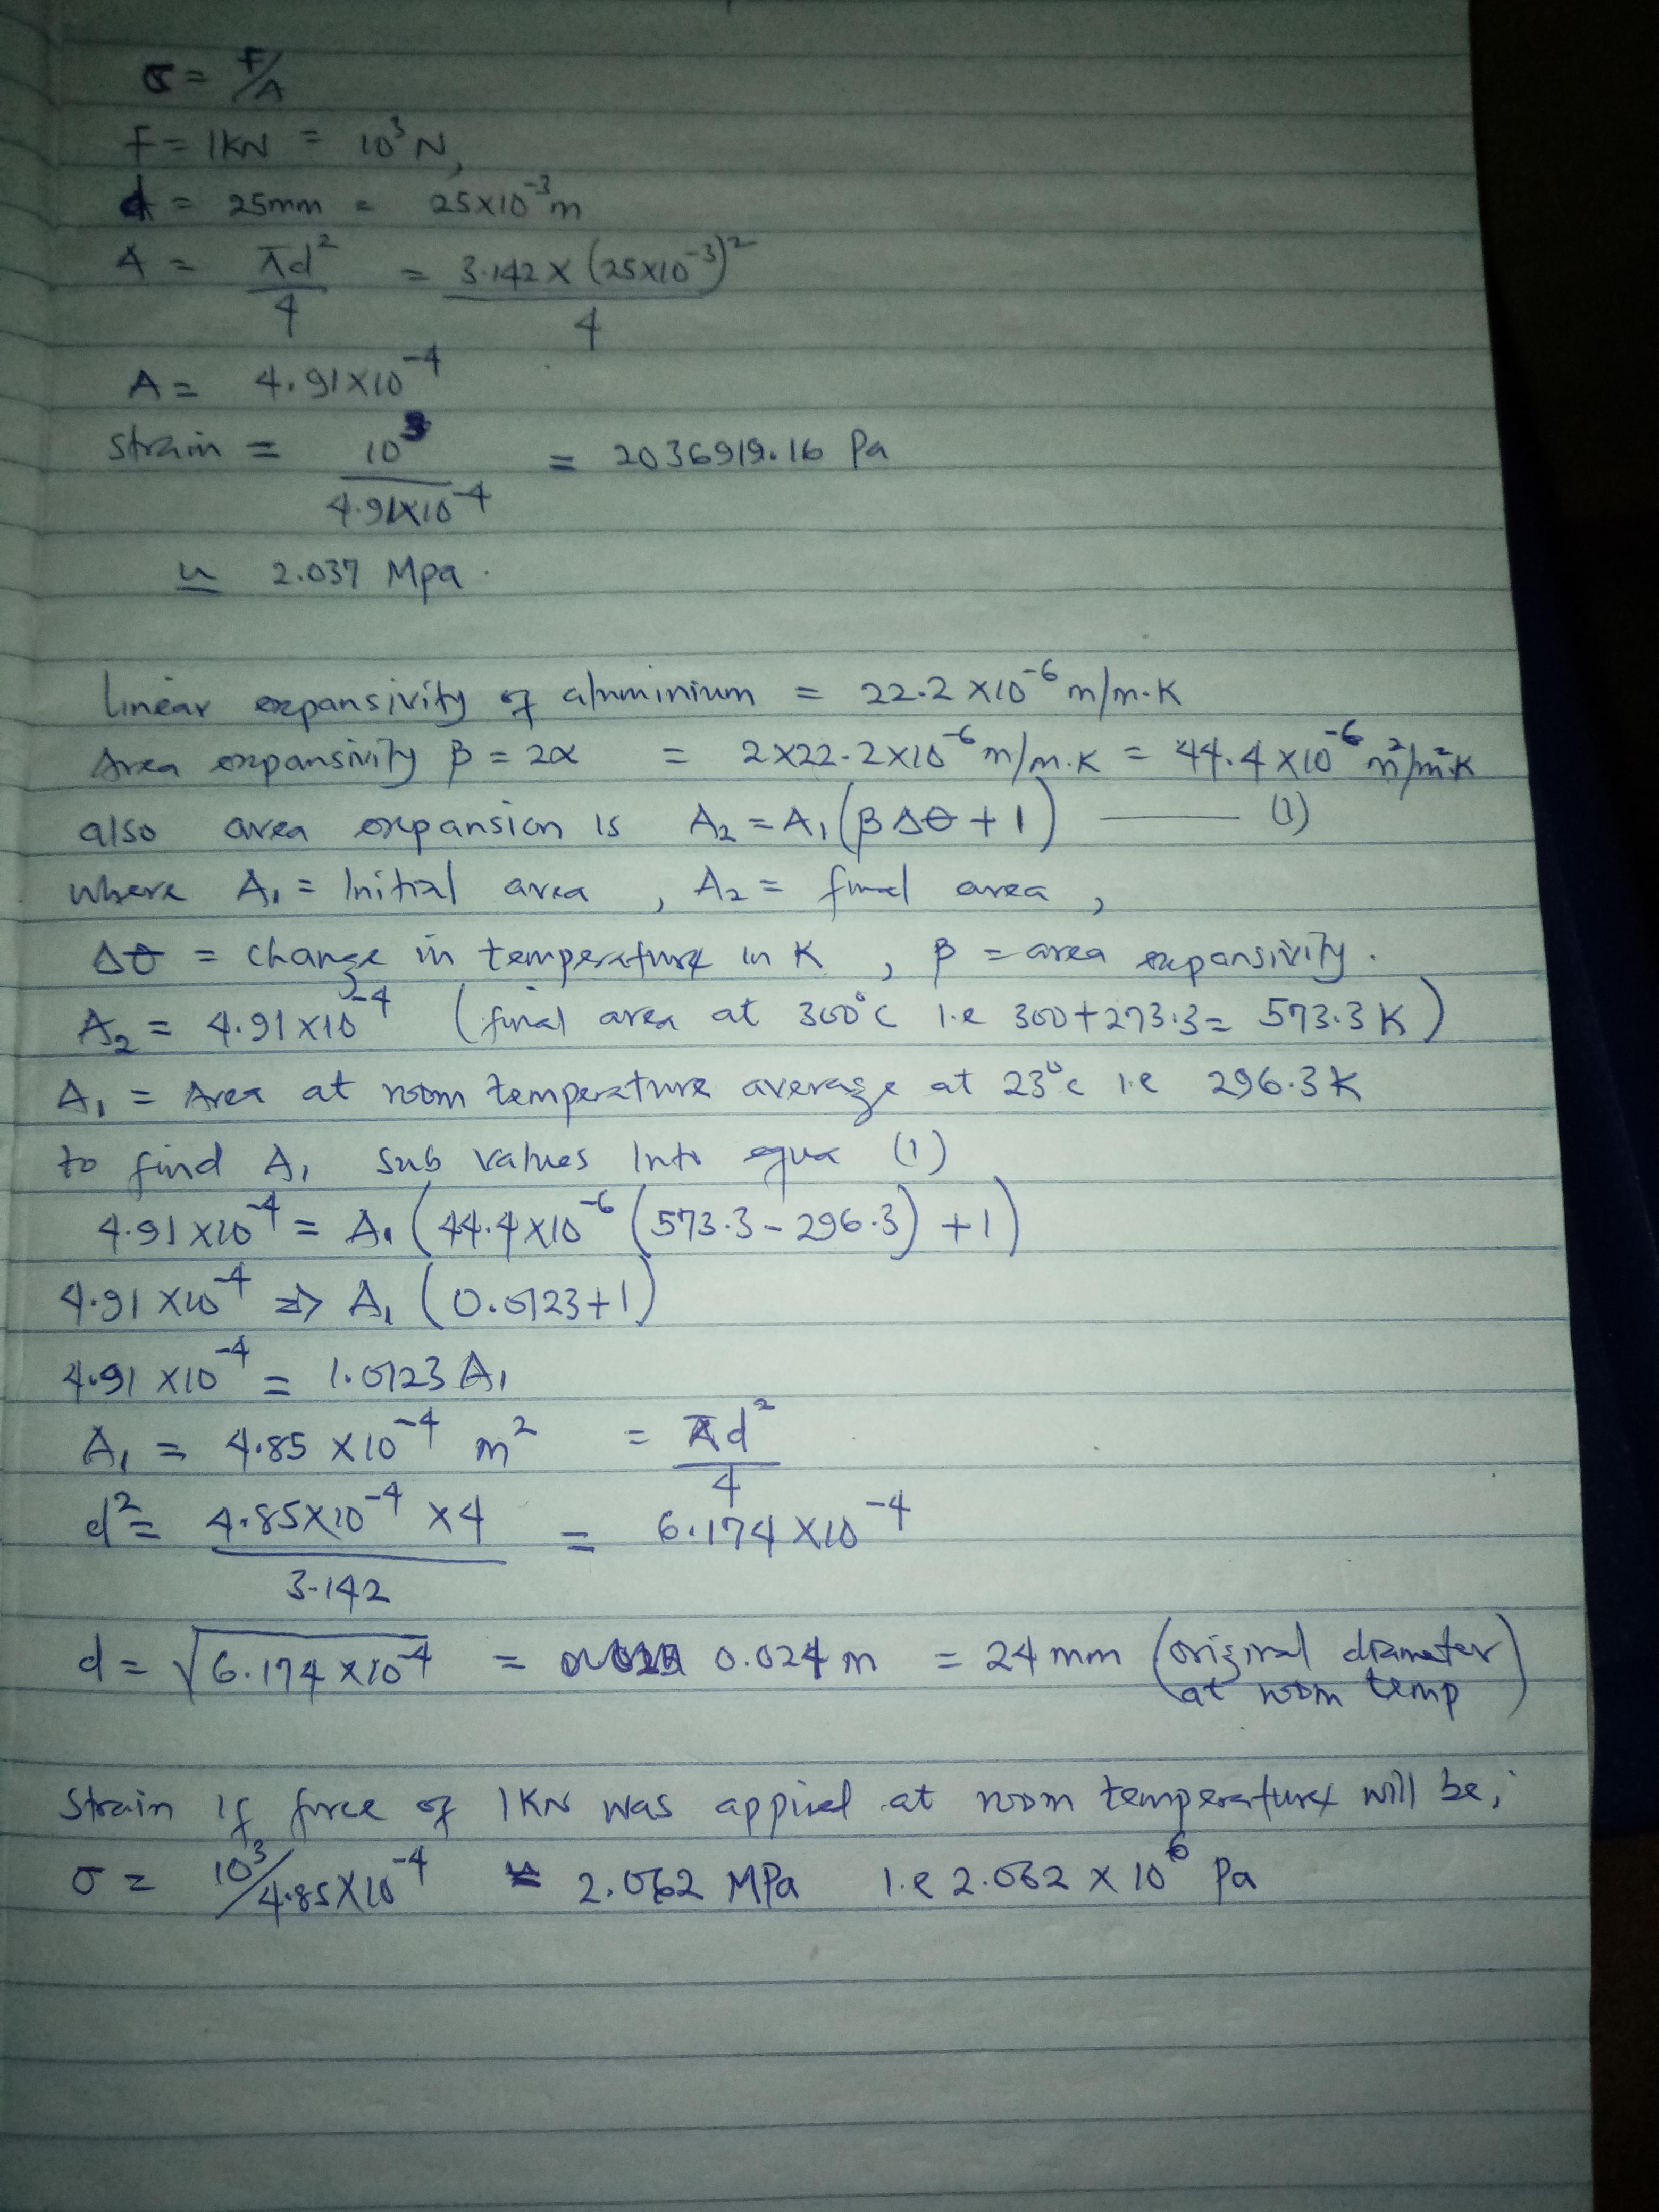 σ = F/A
F = 1KN = 10³ N,
d = 25mm = 25×10⁻³ m
A = πd²/4 = 3.142 × (25×10⁻³)²/4
A = 4.91×10⁻⁴
strain = 10³/4.91×10⁻⁴ = 2036919.16 Pa
≃ 2.037 Mpa.
Linear expansivity of aluminium = 22.2 ×10⁻⁶ m/m.K
Area expansivity β = 2α = 2×22.2×10⁻⁶ m/m.K = 44.4 ×10⁻⁶ m²/m²K
also area expansion is A₂ = A₁(βΔθ + 1) —— (1)
where A₁ = Initial area , A₂ = final area ,
Δθ = change in temperature in K , β = area expansivity.
A₂ = 4.91 ×10⁻⁴ (final area at 300°C i.e 300+273.3 = 573.3 K)
A₁ = Area at room temperature average at 23°c i.e 296.3 K
to find A₁ sub values Into equa (1)
4.91 ×10⁻⁴ = A₁(44.4×10⁻⁶(573.3 - 296.3) +1)
4.91 ×10⁻⁴ => A₁(0.0123+1)
4.91 ×10⁻⁴ = 1.0123 A₁
A₁ = 4.85 ×10⁻⁴ m² = πd²/4
d² = 4.85×10⁻⁴ ×4/3.142 = 6.174 ×10⁻⁴
d = √6.174 ×10⁻⁴ = 0.024 m = 24 mm (original diameter
at room temp)
Strain if force of 1KN was applied at room temperature will be;
σ = 10³/4.85×10⁻⁴ ≃ 2.062 MPa i.e 2.062 × 10⁶ Pa